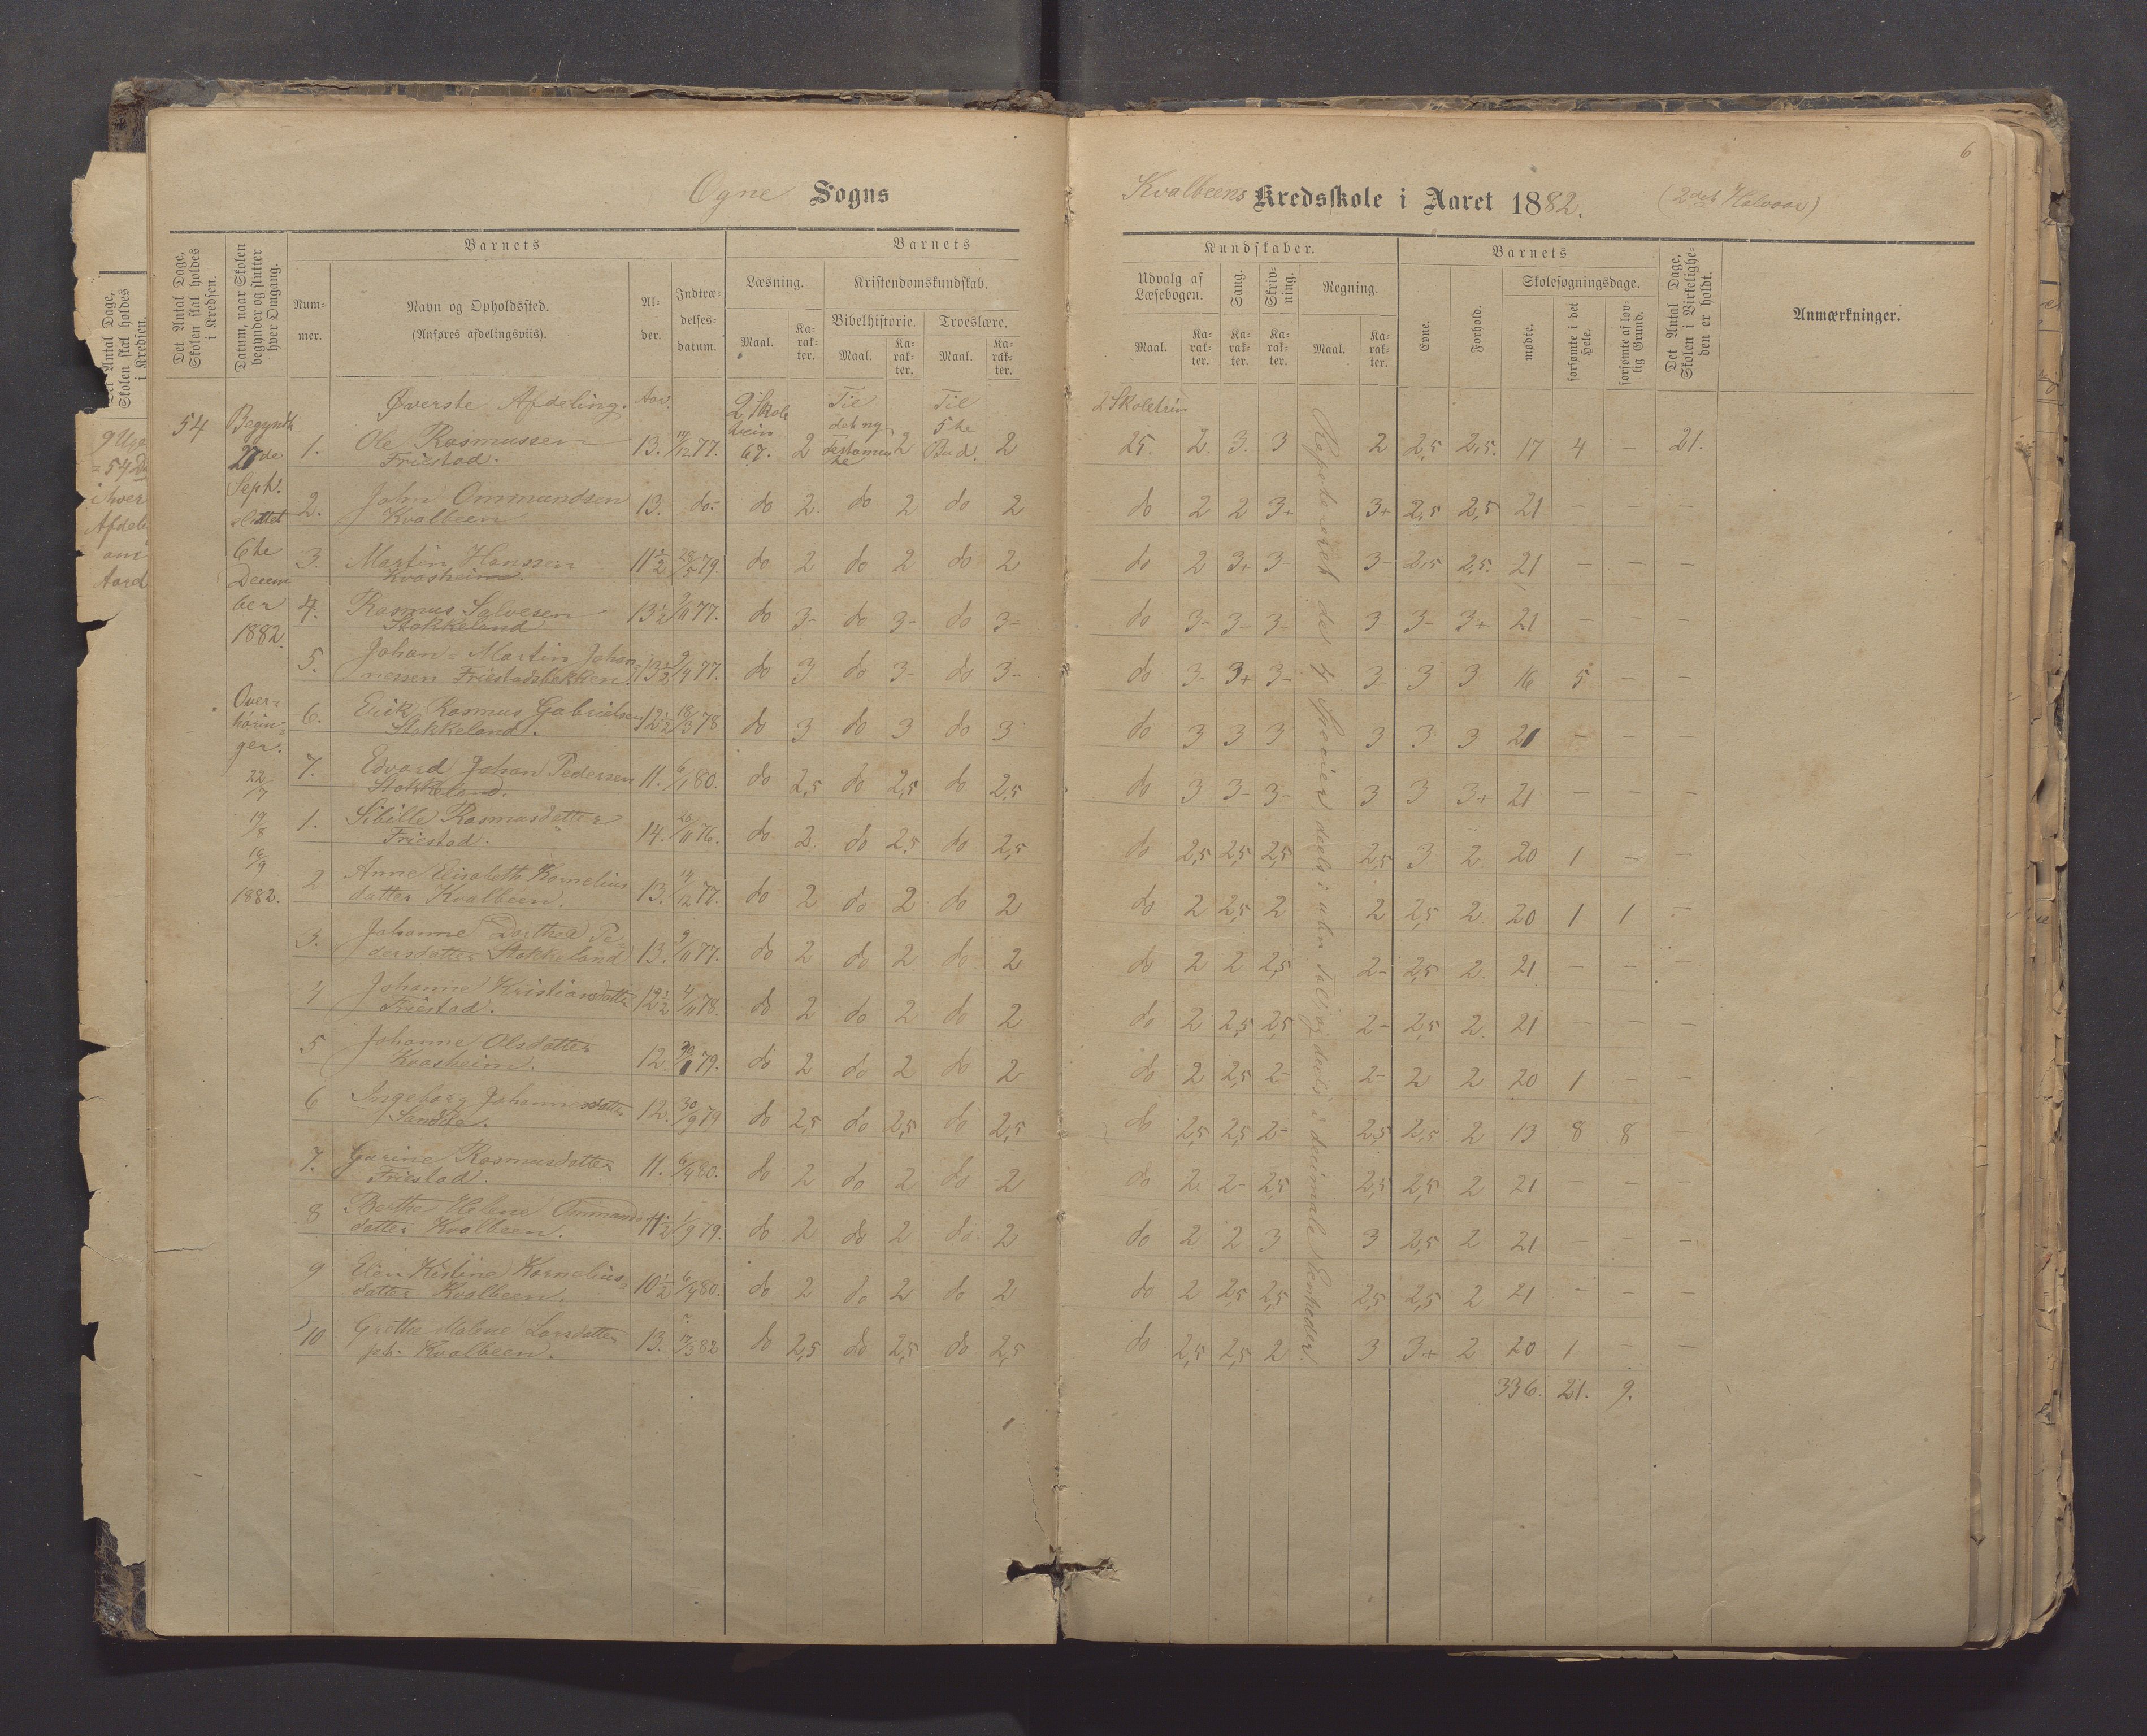 Ogne Sogns
Kvalbeens Kredsskole i Aaret 1882. (2det Halvaar)
6
Det Antal Dage, Skolen skal holdes i Kredsen.
Datum, naar Skolen begynder og slutter hver Omgang.
Barnets
Num-mer.
Navn og Opholdssted.
(Anføres afdelingsviis).
Al-der.
Indtræ-delses-datum.
Barnets
Læsning.
Kristendomskundskab.
Bibelhistorie.
Troeslære.
Maal.
Ka-rak-ter.
Maal.
Ka-rak-ter.
Maal.
Ka-rak-ter.
Kundskaber.
Udvalg af Læsebogen.
Sang.
Skriv-ning.
Regning.
Maal.
Ka-rak-ter.
Ka-rak-ter.
Ka-rak-ter.
Maal.
Ka-rak-ter.
Barnets
Evne.
Forhold.
Skolesøgningsdage.
mødte.
forsømte i det Hele.
forsømte af lov-lig Grund.
Det Antal Dage, Skolen i Virkelighe-den er holdt.
Anmærkninger.
54
Begyndt
27de
Septr.
sluttet
6te
Decem
ber
1882.
Over-
hørin-
ger.
22/7
19/8
16/9
1882.
Øverste Afdeling. Aar. 2 Skole Til Til 2 Skoletrin
trin det ny 5te
1. Ole Rasmussen 13. 14/12 77. 67. 2 Testamente 2 Bud. 2 25. 2. 3. 3 2 2,5 2,5. 17 4 – 21.
Friestad.
2. John Ommundsen 13. do. do 2. do 2 do 2 do 2 2 3+ 3+ 2,5 2,5 21 – – –
Kvalbeen
3. Martin Hanssen 11 1/2 28/5 79. do 2 do 2 do 2 do 2 3+ 3- 3- 2,5 2,5. 21 – – –
Kvasheim.
4. Rasmus Salvesen 13 1/2 9/11 77. do 3- do 3- do 3- do 3- 3- 3- 3- 3- 3+ 21 – – –
Stokkeland
5. Johan Martin Johan- 13 1/2 9/4 77. do 3 do 3- do 3- do 3- 3+ 3- 3- 3 3 16 5 – –
nessen Friestadsbekken.
6. Erik Rasmus Gabrielsen 12 1/2 18/3 78 do 3 do 3 do 3 do 3 3 3 3 3 3 21 – – –
Stokkeland.
7. Edvard Johan Pedersen 11. 6/1 80. do 2,5 do 2,5 do 2,5 do 3 3- 3- 3 3 3+ 21 – – –
Stokkeland.
1. Sibille Rasmusdatter 14. 20/11 76. do 2. do 2,5 do 2,5 do 2,5 2,5 2,5 2,5 3 2 20 1 – –
Friestad.
2 Anne Elisabeth Kornelius 13. 14/12 77. do 2 do 2 do 2 do 2 2,5 2 2 2,5 2. 20 1 1 –
datter Kvalbeen.
3. Johanne Dorthea Pe- 13. 9/11 77. do 2 do 2 do 2 do 2 2 2,5 2- 2,5 2. 21 – – –
dersdatter Stokkeland
4 Johanne Kristiansdatter 12 1/2 4/11 78. do 2 do 2 do 2 do 2 2,5 2,5 2- 2,5 2. 21 – – –
Friestad.
5 Johanne Olsdatter 12. 79. do 2 do 2 do 2 do 2 2,5 2- 2- 2 2 20 1 – –
Kvasheim.
6 Ingeborg Johannesdatter 12. 30/9 79 do 2,5 do 2,5 do 2,5 do 2,5 2,5 2- 2,5 2,5 2 13 8 8 –
7. Gurine Rasmusdatter 11. 6/4 80. do 2 do 2 do 2 do 2. 2- 2,5 2,5 2,5 2 21 – – –
Friestad.
8 Berthe Helene Ommunds 11 1/2 1/9 79. do 2 do 2 do 2 do 2 2 3 3 2,5 2 21 – – –
datter Kvalbeen.
9 Elen Kistine Kornelius- 10 1/2 6/4 80. do 2 do 2 do 2 do 2 2,5 2,5 2,5 2,5 2 21 – – –
datter Kvalbeen.
10 Grethe Malene Larsdatter 13. 17/3 82 do 2,5 do 2,5 do 2,5 do 2,5 2,5 2 3 3+ 2 20 1 – –
pt. Kvalbeen.
336. 21. 9.
Repeteret de 4 Specier, deels i ubn. Tal, og deels i decimale Eenheder.
Det Antal Dage,
Skolen skal holdes
i Kredsen.
= 54 Da
i hver
Afdeli